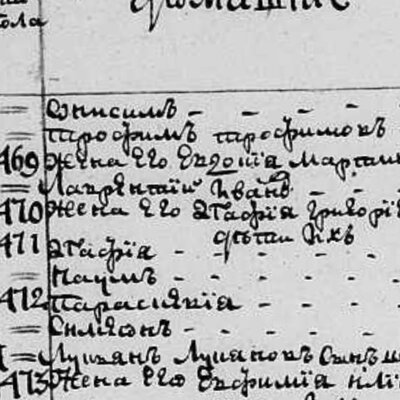 Онисимъ
Трофимъ Трофимовъ
469 Жена его Евдокїа Мартин
Лаврентїй Ивановъ
470 Жена его Агафїя Григорїе
дѣти ихъ
471 Агафїя
Наумъ
472 Парасиквїа
Симеонъ
Лукьянъ Лукьяновъ сынъ
473 Жена его Евфимїа Илї